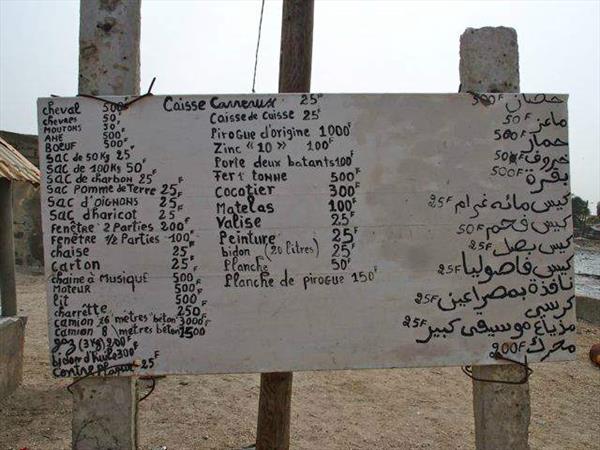 cheval 500F
chevres 50F
MOUTONS 50F
ANE 500F
BOEUF 500F
SAC de 50Kg 25F
SAC de 100Kg 50F
SAC de charbon 25F
SAC Pomme de Terre 25F
SAC d'oignons 25F
SAC d'haricot 25F
Fenêtre 2 Parties 200F
Fenêtre 1/2 Parties 100F
chaise 25F
carton 25F
chaine à Musique 500F
Moteur 500F
lit 500F
charrette 250F
camion 16 mètres "béton" 3000F
camion 8 \mètres "béton" 1500
gaz (3Kg) 200F
bidon d'huile 300F
contre plaqué 25F
Caisse Carreaux 25F
Caisse de Cuisse 25F
Pirogue d'origine 1000F
Zinc "10" 100F
Porte deux batants 100F
Fer 1 tonne 500F
Cocotier 300F
Matelas 100F
Valise 25F
Peinture 25F
bidon (20 litres) 25F
Planche 50F
Planche de pirogue 150F
حصان 500F
ماعز 50F
حمار 500F
خروف 50F
بقرة 500F
كيس مائه غرام 25F
كيس فحم 50F
كيس بصل 25F
كيس فاصوليا 25F
نافذة بمصراعين 25F
كرسي
مذياع موسيقى كبير 25F
محرك 200F